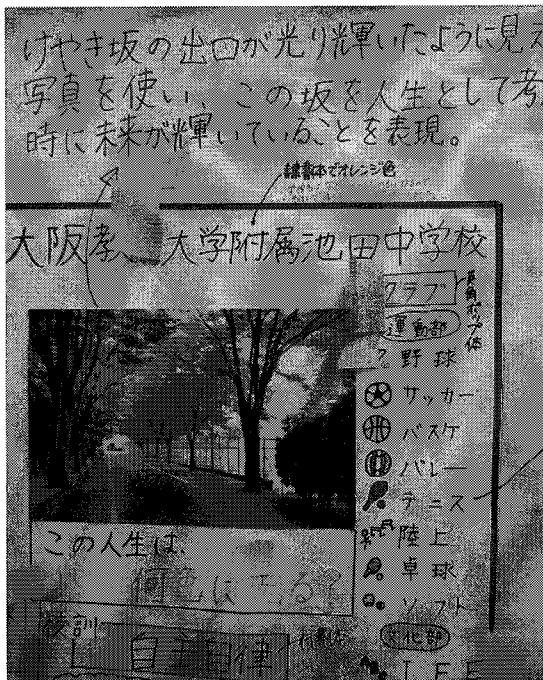 けやき坂の出口が光り輝いたように見え
写真を使い、この坂を人生として考
時に未来が輝いていることを表現。
隷書体でオレンジ色
大阪孝 大学附属池田中学校
クラブ
ポップ体
運動部
野球
サッカー
バスケ
バレー
テニス
陸上
卓球
ソフト
文化部
この人生は、
何色になる?
校訓
自主自律